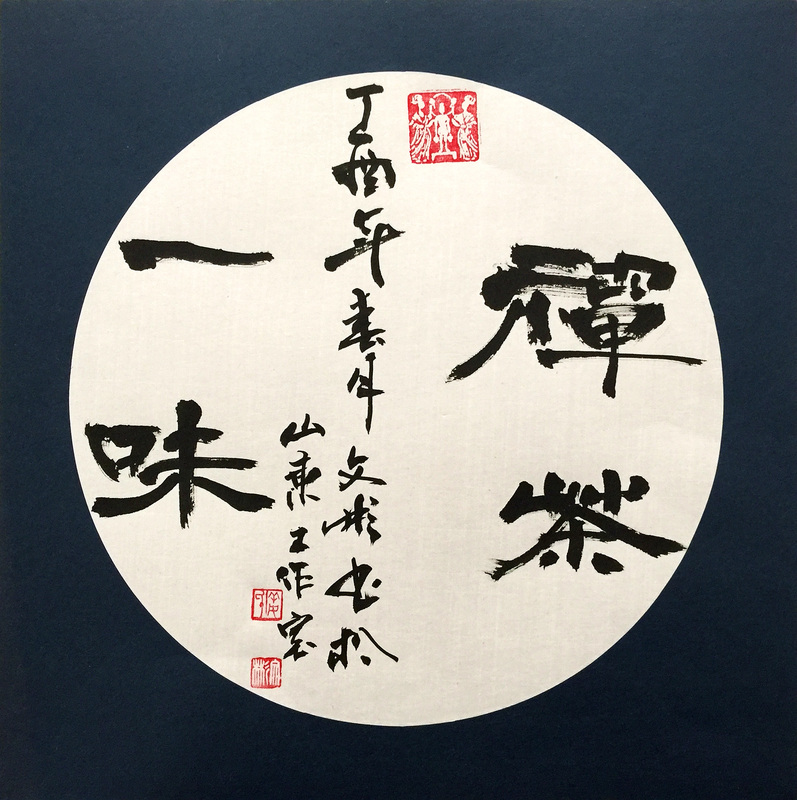 禪茶
一味
丁酉年春月文彬书於
山工作室